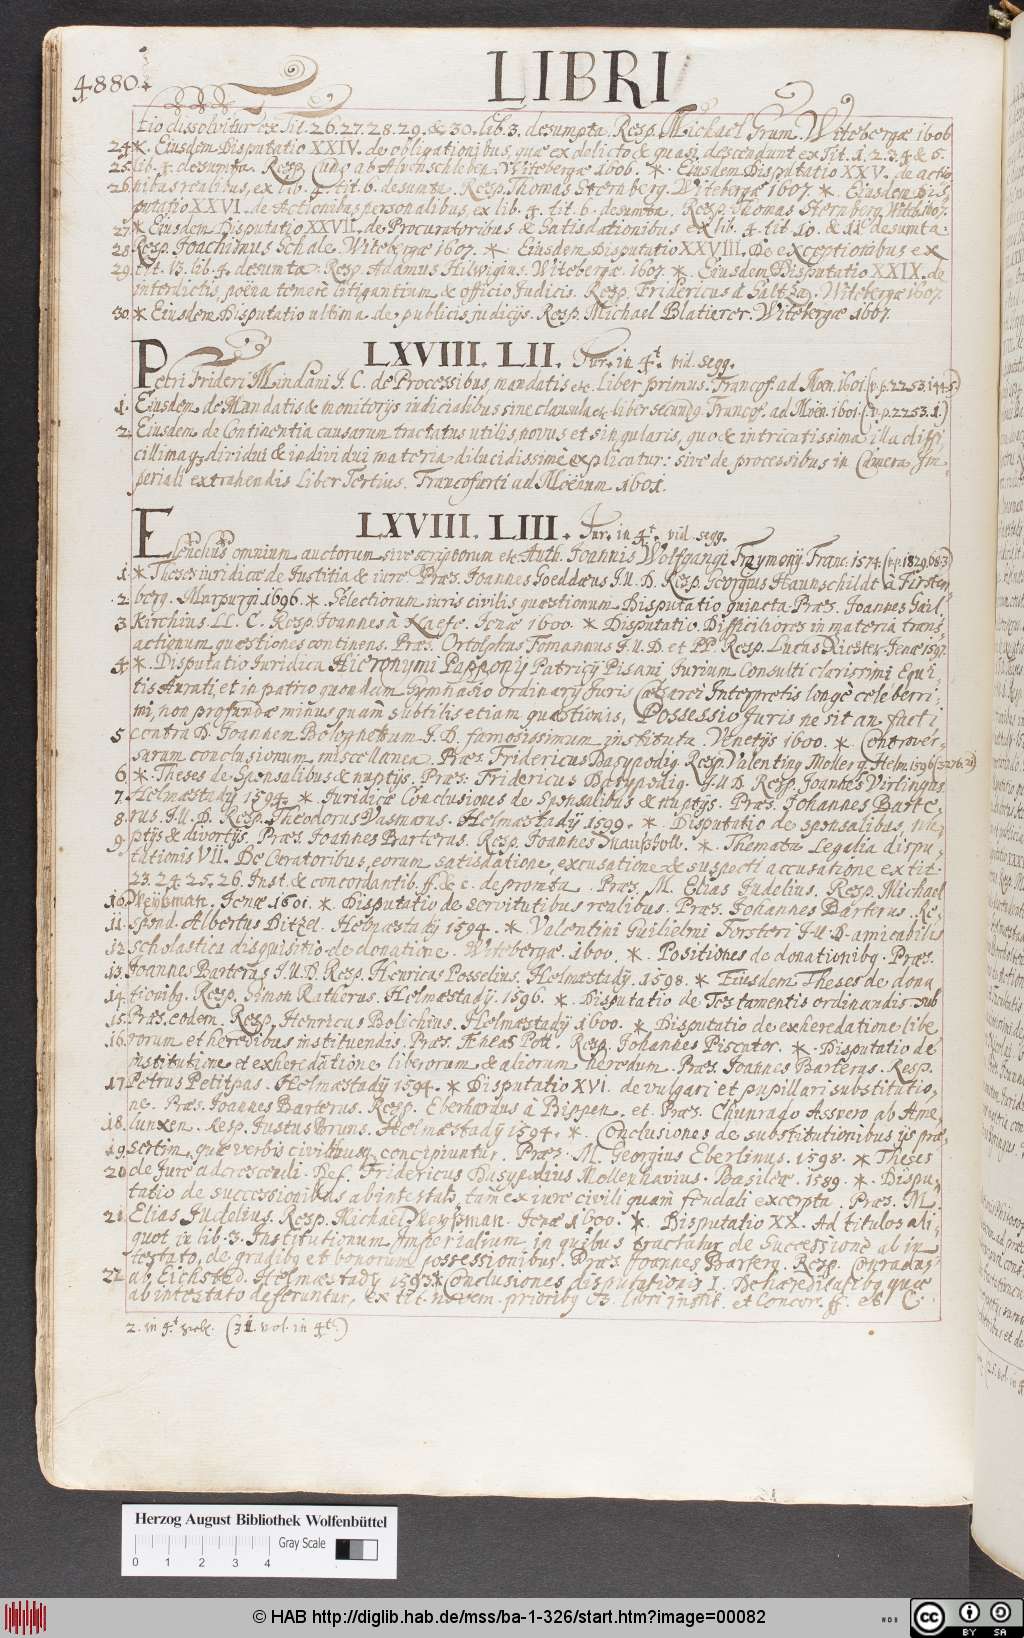 4880.
LIBRI
tio dissolvitur ex Tit. 26. 27. 28. 29. & 30. lib. 3. desumpta. Resp. Michael Grum. Witebergæ 1606
24 * Eiusdem Disputatio XXIV. de obligationibus, quæ ex delicto & quasi descendunt ex Tit. 1. 2. 3. 4 & 5.
25. lib. 4. desumpta. Resp. Cuno ab Alvenschleben. Witebergæ 1606. * Eiusdem Disputatio XXV. de actio
26. nibus realibus, ex lib. 4. tit. 6. desumta. Resp. Thomas Sternberg. Witebergæ 1607. * Eiusdem Dis-
putatio XXVI. de Actionibus personalibus, ex lib. 4. tit. 6. desumta. Resp. Thomas Sternberg. Witeb. 1607.
27. * Eiusdem Disputatio XXVII. de Procuratoribus & Satisdationibus ex lib. 4. tit. 10. & 11. desumta.
28. Resp. Joachimus Schale. Witebergæ 1607. * Eiusdem Disputatio XXVIII. De exceptionibus ex
29. tit. 13. lib. 4. desumta. Resp. Adamus Hilwigius. Witebergæ 1607. * Eiusdem Disputatio XXIX. de
interdictis poena temerè litigantium & officio Judicis. Resp. Fridericus à Saltza. Witebergæ 1607.
30. * Eiusdem Disputatio ultima de publicis judicijs. Resp. Michael Blatierer. Witebergæ 1607.
LXVIII. LII. Jur. in 4t. vid. seqq.
Petri Frideri Mindani J. C. de Processibus mandatis etc. liber primus. Francof. ad Moen. 1601. (v. p. 2253. 144. 5.)
1. Eiusdem de Mandatis & monitorijs iudicialibus sine clausula etc. liber secundq. Francof. ad Moen. 1601. (v. p. 2253. 1.)
2. Eiusdem de Continentia causarum tractatus utilis, novus et singularis, quo & intricatissima illa diffi
cillimaq dividui & individui materia dilucidissimè explicatur: sive de processibus in Camera Im-
periali extrahendis Liber Tertius. Francofurti ad Moenum 1601.
LXVIII. LIII. Jur. in 4t. vid. seqq.
Elenchus omnium auctorum sive scriptorum etc. Auth. Joannis Wolfgangi Fraymonij Franc. 1574. (v. p. 1829.68.3)
1. * Theses iuridicæ de Justitia & iure. Præs. Joannes Goeddæus J. U. D. Resp. Georgius Haunschildt à Fürsten
2. berg. Marpurgi 1696. * Selectiorum iuris civilis quæstionum Disputatio quincta. Præs. Joannes Gail-
3. Kirchius. LL. C. Resp. Joannes à Kaefe. Jenæ 1600. * Disputatio Difficiliores in materia trans-
actionum quæstiones continens. Præs. Ortolphus Fomannus J. U. D. et PP. Resp. Lucas Riester. Jenæ 1597.
4. * Disputatio Juridica Hieronymi Papponij Patricij Pisani Jurium Consulti clarissimi Equi-
tis Aurati, et in patrio quondam Gymnasio ordinarij Juris Cæsarei Interpretis longè celeberri-
mi, non profundæ minus quam subtilis etiam quæstionis, Possessio Juris ne sit an facti
5. contra D. Joannem Bolognetum J. D. famosissimum instituta. Venetijs 1600. * Controver-
sarum conclusionum miscellanea. Præs. Fridericus Dasypodiq. Resp. Valentinq Mollerq. Helm. 1596.
6. * Theses de Sponsalibus & nuptijs. Præs. Fridericus Dasypodiq. J. U. D. Resp. Joannes Virlingus
7. Helmæstadij 1594. * Juridicæ Conclusiones de Sponsalibus & nuptijs. Præs. Johannes Barte-
8. rus. J. U. D. Resp. Theodorus Vasmarus. Helmæstadij 1599. * Disputatio de sponsalibus, nu-
9. ptijs & divortijs. Præs. Joannes Barterus. Resp. Joannes * Themata Legalia dispu-
tationis VII. De Curatoribus, eorum satisdatione, excusatione & suspecti accusatione ex tit.
23. 24. 25. 26. Inst. & concordantib. ff. & c. depromta. Præs. M. Elias Judelius. Resp. Michael
10. Weyßman. Jenæ 1601. * Disputatio de servitutibus realibus. Præs. Johannes Barterus. Re-
11. spond. Albertus Ditzel. Helmæstadij 1594. * Valentini Guilielmi Forsteri J. U. D. amicabilis
12. scholastica disquisitio de donatione. Witebergæ. 1600. * Positiones de donationibq. Præs.
13. Joannes Barterus J. U. D. Resp. Henricus Posselius. Helmæstadij. 1598. * Eiusdem Theses de dona
14. tionibq. Resp. Simon Ratherus. Helmæstadij. 1596. * Disputatio de Testamentis ordinandis sub
15. Præs. eodem. Resp. Henricus Bolichius. Helmæstadij 1600. * Disputatio de exheredatione libe
16. rorum et heredibus instituendis. Præs. Æneas Pott. Resp. Johannes Piscator. * Disputatio de
institutione et exheredatione liberorum & aliorum heredum. Præs. Joannes Barterus. Resp.
17. Petrus Petitpas. Helmæstadij 1594. * Disputatio XVI. de vulgari et pupillari substitutio-
ne. Præs. Joannes Barterus. Resp. Eberhardus à Bippen. et Præs. Chunrado Asspero ab Ame-
18. lunxen. Resp. Justus Bruns. Helmæstadij 1594. * Conclusiones de substitutionibus ijs præ-
19. sertim, quæ verbis civilibus concipiuntur. Præs. M. Georgius Eberlinus. 1598. * Theses
20. de Jure adcrescendi. Def. Fridericus Dasypodius Mollenhavius. Basileæ. 1589. * Dispu-
tatio de successionibus ab intestato, tam ex iure civili quam feudali excerpta. Præs. M.
21. Elias Judelius. Resp. Michael Weyßman. Jenæ 1600. * Disputatio XX. Ad titulos ali-
quot in lib. 3. Institutionum Imperialium, in quibus tractatur de Successione ab in
testato, de gradibq et bonorum possessionibus. Præs. Joannes Barterq. Resp. Conradus
22. ab Eichsted. Helmæstadij 1593. * Conclusiones disputationis I. De hæreditatibq quæ
ab intestato deferuntur, ex tit. novem prioribq lib. 3. libri instit. et Concor. ff. et C.
2. in 4t. (31. vol. in 4t.)
Herzog August Bibliothek Wolfenbüttel
Gray Scale
0 1 2 3 4
© HAB http://diglib.hab.de/mss/ba-1-326/start.htm?image=00082
WDB
cc BY SA